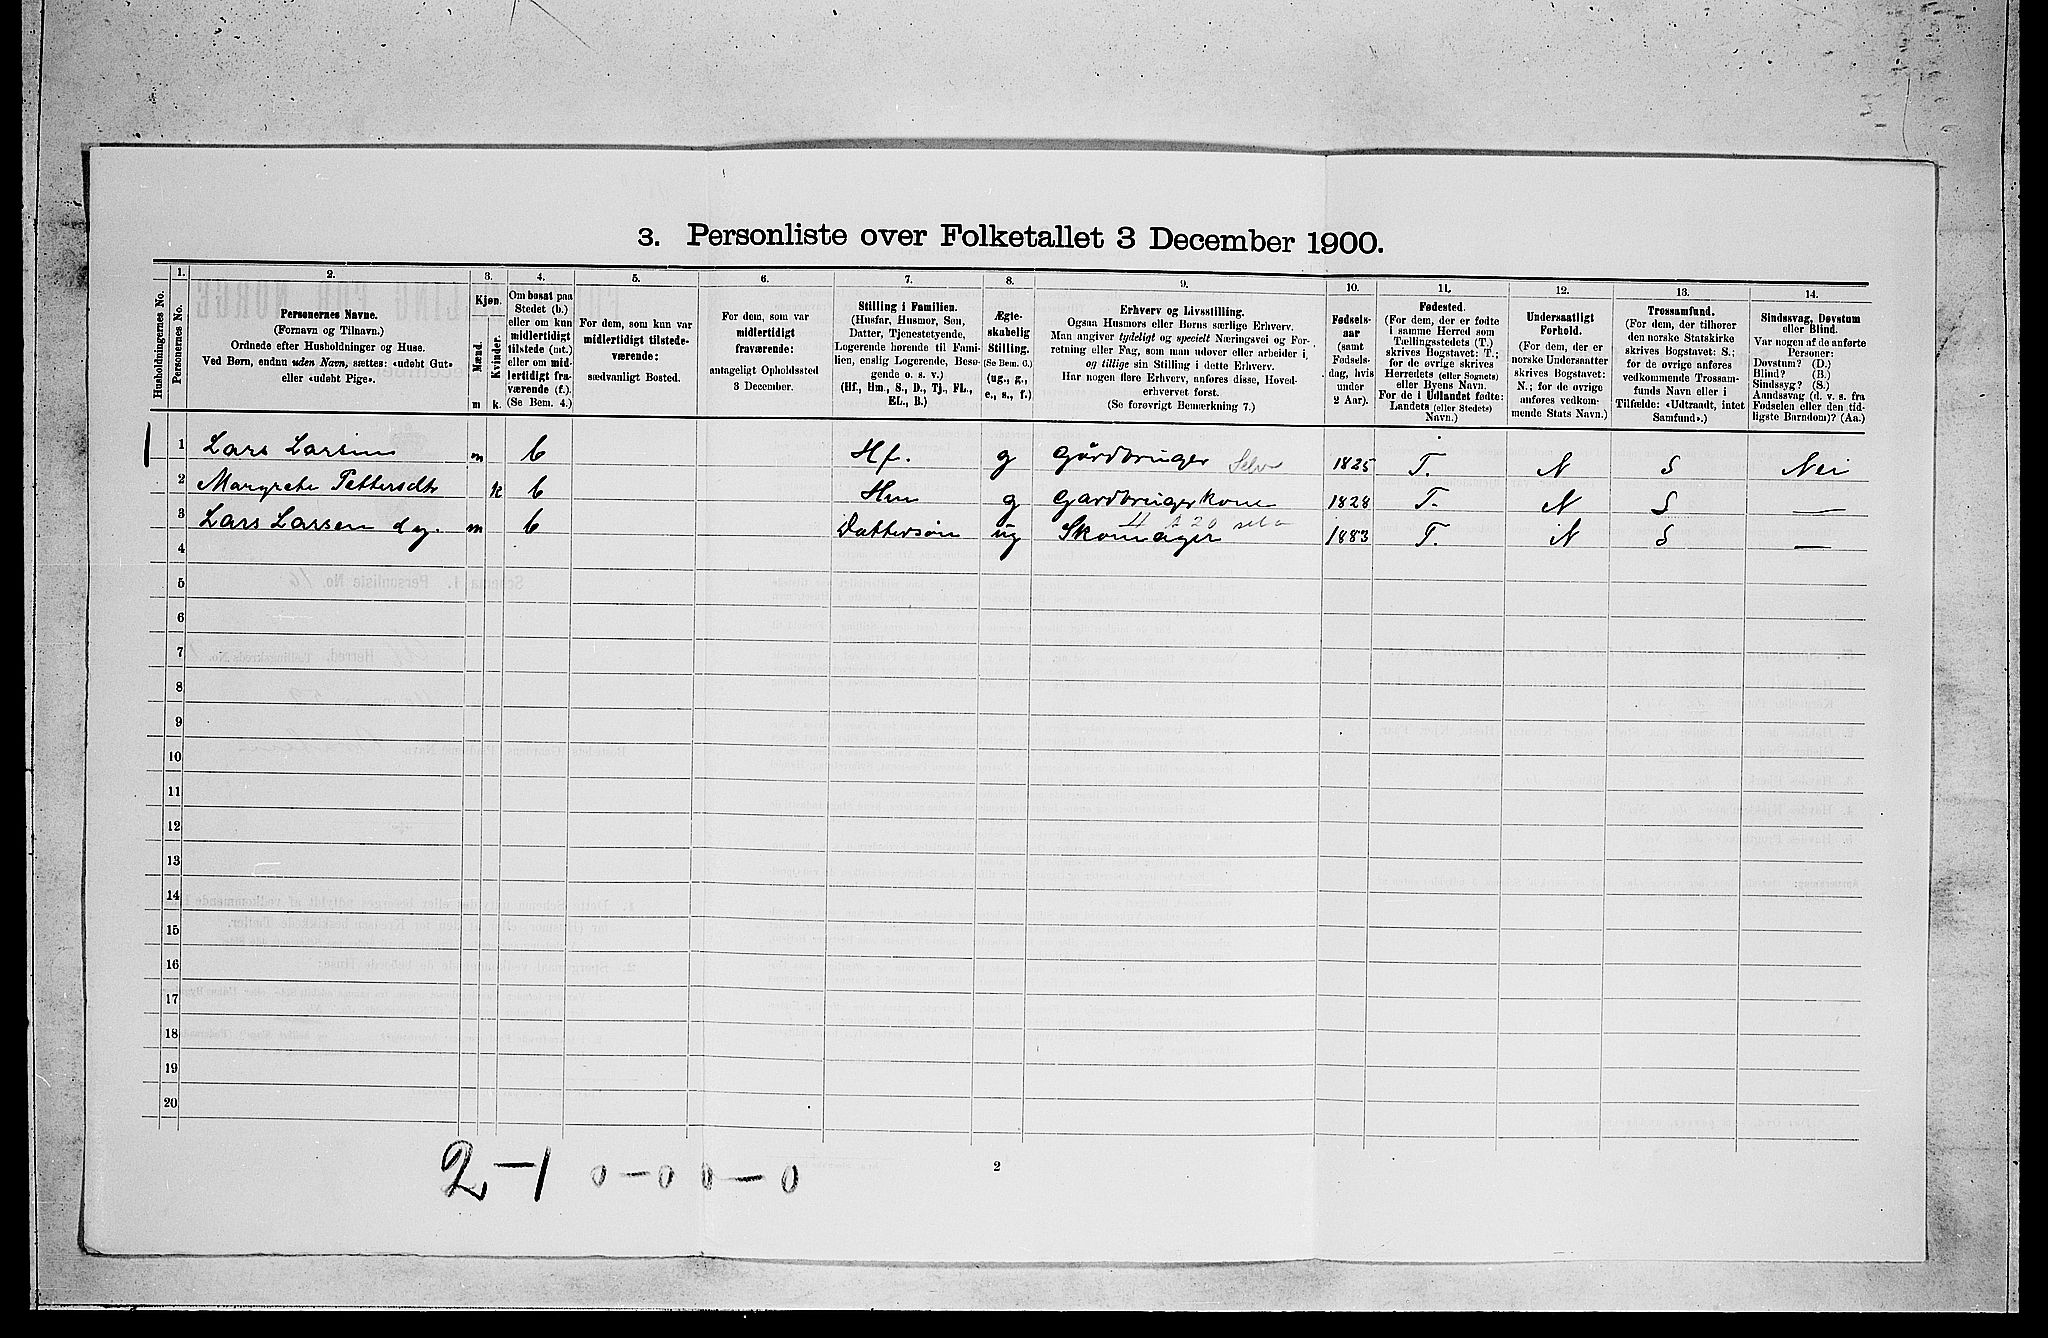 3. Personliste over Folketallet 3 December 1900.
Husholdningernes No.
1.
Personernes No.
2.
Personernes Navne.
(Fornavn og Tilnavn.)
Ordnede efter Husholdninger og Huse.
Ved Børn, endnu uden Navn, sættes: «udøbt Gut»
eller «udøbt Pige».
3.
Kjøn.
Mænd.
Kvinder.
m
k.
4.
Om bosat paa
Stedet (b.)
eller om kun
midlertidigt
tilstede (mt.)
eller om mid-
lertidigt fra-
værende (f.).
(Se Bem. 4.)
5.
For dem, som kun var
midlertidigt tilstede-
værende:
sædvanligt Bosted.
6.
For dem, som var
midlertidigt
fraværende:
antageligt Opholdssted
3 December.
7.
Stilling i Familien.
(Husfar, Husmor, Søn,
Datter, Tjenestetyende,
Logerende hørende til Fami-
lien, enslig Logerende, Besø-
gende o. s. v.)
(Hf., Hm., S., D., Tj., FL.,
EL., B.)
8.
Ægte-
skabelig
Stilling.
(Se Bem. 6.)
(ug., g.,
e., s., f.)
9.
Erhverv og Livsstilling.
Ogsaa Husmors eller Børns særlige Erhverv.
Man angiver tydeligt og specielt Næringsvei og For-
retning eller Fag, som man udøver eller arbeider i,
og tillige sin Stilling i dette Erhverv.
Har nogen flere Erhverv, anføres disse, Hoved-
erhvervet først.
(Se forøvrigt Bemærkning 7.)
10.
Fødsels-
aar
(samt
Fødsels-
dag, hvis
under
2 Aar).
11.
Fødested.
(For dem, der er fødte
i samme Herred som
Tællingsstedets (T.)
skrives Bogstavet: T.;
for de øvrige skrives
Herredets (eller Sognets)
eller Byens Navn.
For de i Udlandet fødte:
Landets (eller Stedets)
Navn.)
12.
Undersaatligt
Forhold.
(For dem, der er
norske Undersaatter
skrives Bogstavet:
N.; for de øvrige
anføres vedkom-
mende Stats Navn.)
13.
Trossamfund.
(For dem, der tilhører
den norske Statskirke
skrives Bogstavet: S.;
for de øvrige anføres
vedkommende Trossam-
funds Navn eller i
Tilfælde: «Udtraadt, intet
Samfund».)
14.
Sindssvag, Døvstum
eller Blind.
Var nogen af de anførte
Personer:
Døvstum? (D.)
Blind? (B.)
Sindssyg? (S.)
Aandssvag (d. v. s. fra
Fødselen eller den tid-
ligste Barndom)? (Aa.)
1 Lars Larsen m b Hf. g Gårdbruger Selv 1825 T. N S Nei
2 Margrete Pettersdtr k b Hm g Gardbrugerkone 1828 T. N S —
3 Lars Larsen d.y. m b Dattersön ug Skomager 1883 T. N S —
4
5
6
7
8
9
10
11
12
13
14
15
16
17
18
19
20
2–1 0–0 0–0
2